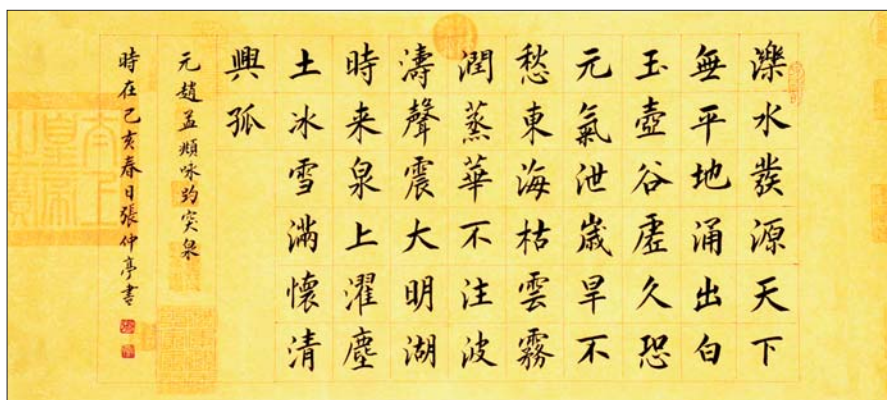 濼水發源天下
無平地涌出白
玉壺谷虛久恐
元氣泄歲旱不
愁東海枯雲霧
潤蒸華不注波
濤聲震大明湖
時来泉上濯塵
土冰雪滿懷清
興孤
元趙孟頫咏趵突泉
時在己亥春日張仲亭書